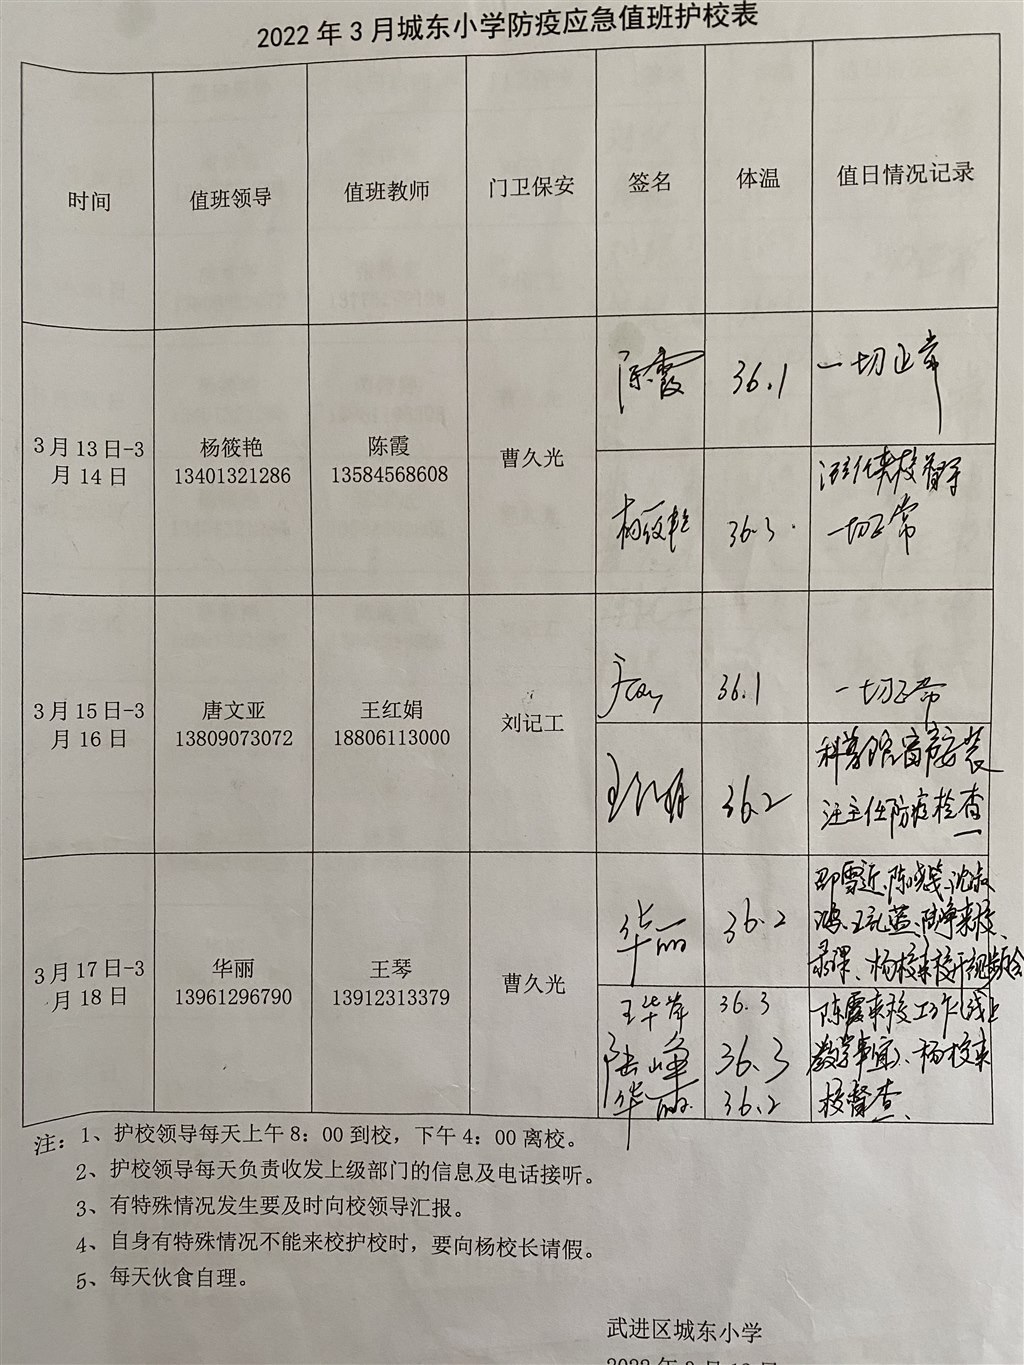 2022年3月城东小学防疫应急值班护校表
时间 值班领导 值班教师 门卫保安 签名 体温 值日情况记录
陈霞 36.1 一切正常
3月13日-3
月14日
杨筱艳
13401321286
陈霞
13584568608
曹久光
杨筱艳 36.3 汪主任来校督导
一切正常
36.1 一切正常
3月15日-3
月16日
唐文亚
13809073072
王红娟
18806113000
刘记工
王红娟 36.2 科学馆窗帘安装
汪主任防疫检查
华丽 36.2 邵雪近、陈晓芸、沈淑
来校、
录课、杨校来校开视频会
3月17日-3
月18日
华丽
13961296790
王琴
13912313379
曹久光
王华岸 36.3 陈霞来校工作(线上
陆峰 36.3 教学事宜)、杨校来
华丽 36.2 校督查、
注：1、护校领导每天上午8：00到校，下午4：00离校。
2、护校领导每天负责收发上级部门的信息及电话接听。
3、有特殊情况发生要及时向校领导汇报。
4、自身有特殊情况不能来校护校时，要向杨校长请假。
5、每天伙食自理。
武进区城东小学